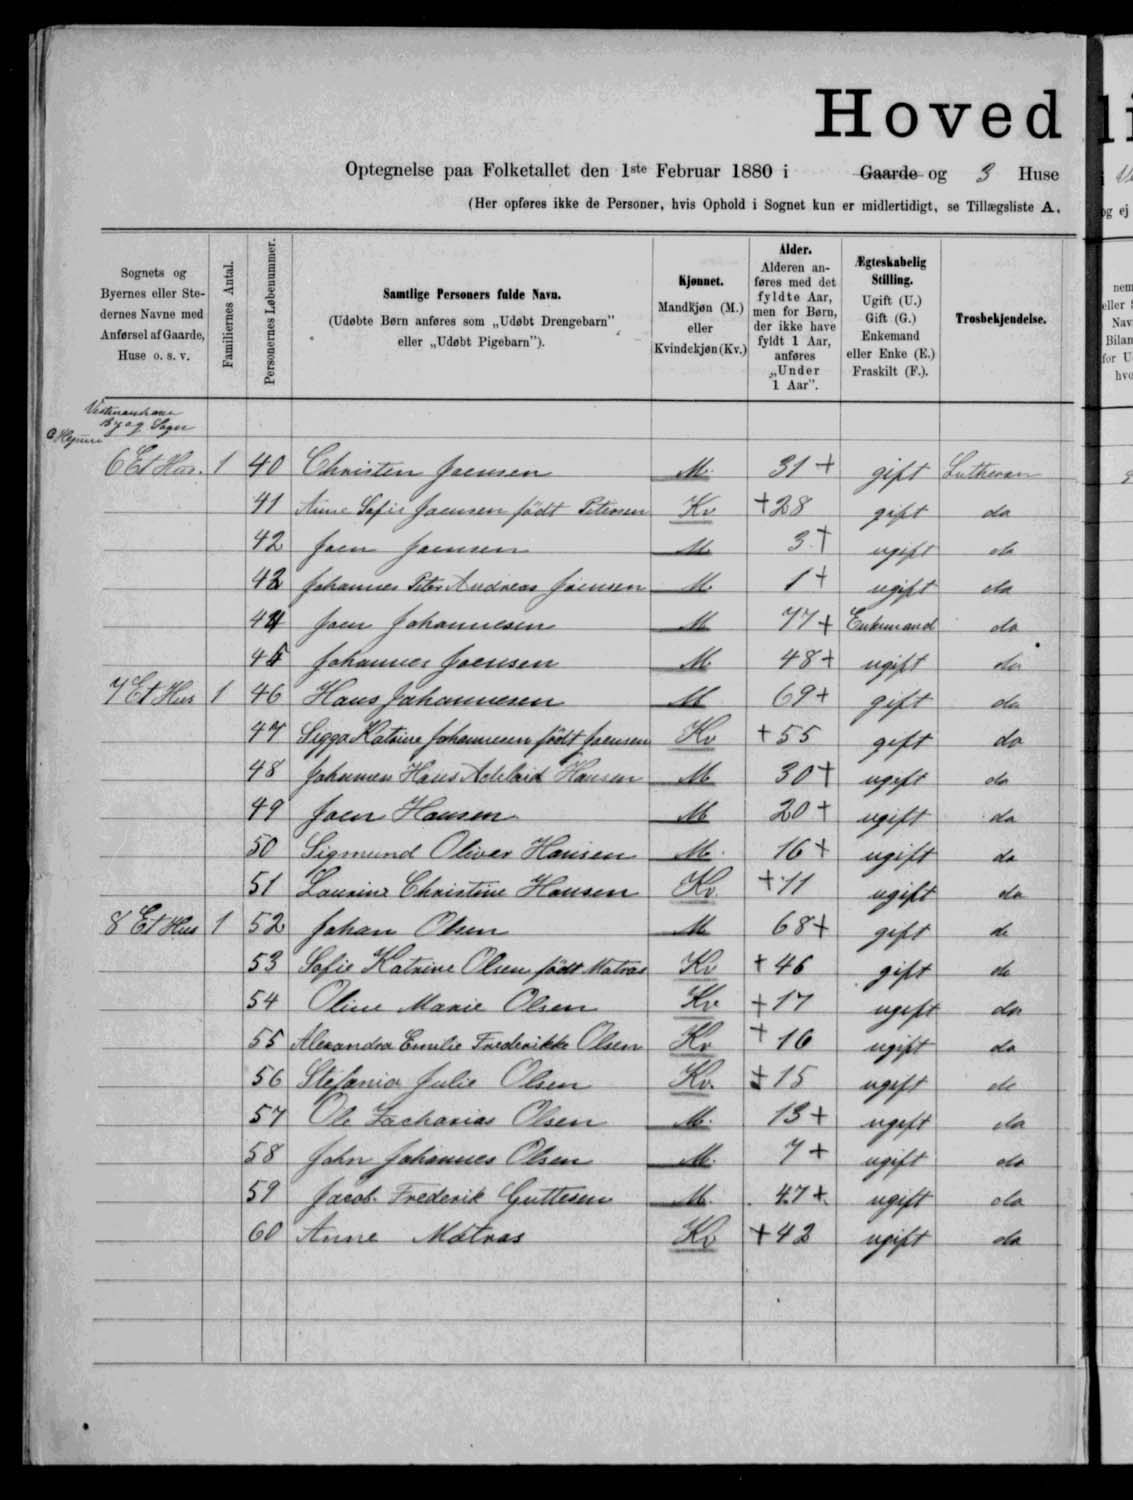 Hoved
Optegnelse paa Folketallet den 1ste Februar 1880 i Gaarde og 3 Huse
(Her opføres ikke de Personer, hvis Ophold i Sognet kun er midlertidigt, se Tillægsliste A.
Sognets og Byernes eller Stedernes Navne med Anførsel af Gaarde, Huse o. s. v.
Familiernes Antal.
Personernes Løbenummer.
Samtlige Personers fulde Navn.
(Udøbte Børn anføres som „Udøbt Drengebarn" eller „Udøbt Pigebarn").
Kjønnet.
Mandkjøn (M.) eller Kvindekjøn (Kv.)
Alder.
Alderen anføres med det fyldte Aar, men for Børn, der ikke have fyldt 1 Aar, anføres „Under 1 Aar".
Ægteskabelig Stilling.
Ugift (U.) Gift (G.) Enkemand eller Enke (E.) Fraskilt (F.).
Trosbekjendelse.
By og Sogn
6 Et Hus. 1 40 Christen Joensen M. 31 + gift Lutheran
41 Anne Sofie Joensen födt Petersen Kv + 28 gift do
42 Joen Joensen M. 3 + ugift do
43 Johannes Peter Andreas Joensen M. 1 + ugift do
44 Joen Johannesen M 77 + Enkemand do
45 Johannes Joensen M. 48 + ugift do
7 Et Hus 1 46 Hans Johannesen M 69 + gift do
47 Sigga Katrine Johannesen födt Joensen Kv + 55 gift do
48 Johannes Hans Hansen M 30 + ugift do
49 Joen Hansen M 20 + ugift do
50 Sigmund Oliver Hansen M. 16 + ugift do
51 Laurine Christine Hansen Kv + 11 ugift do
8 Et Hus 1 52 Johan Olsen M 68 + gift do
53 Sofie Katrine Olsen födt Matras Kv + 46 gift do
54 Oline Marie Olsen Kv + 17 ugift do
55 Alexandra Emilie Frederikke Olsen Kv + 16 ugift do
56 Stefania Julie Olsen Kv. + 15 ugift do
57 Ole Zacharias Olsen M. 13 + ugift do
58 John Johannes Olsen M. 7 + ugift do
59 Jacob Frederik Guttesen M. 47 + ugift do
60 Anne Matras Kv + 42 ugift do